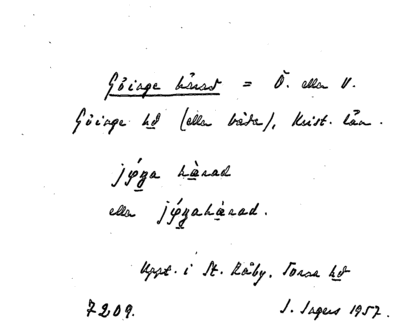 Göinge härad = Ö. ella V.
Göinge hd (ella båda), Krist. län.
jǿŋa hàrad
ella jǿŋahàrad.
Uppt. i St. Råby, Torna hd
7209. I. Ingers 1957.